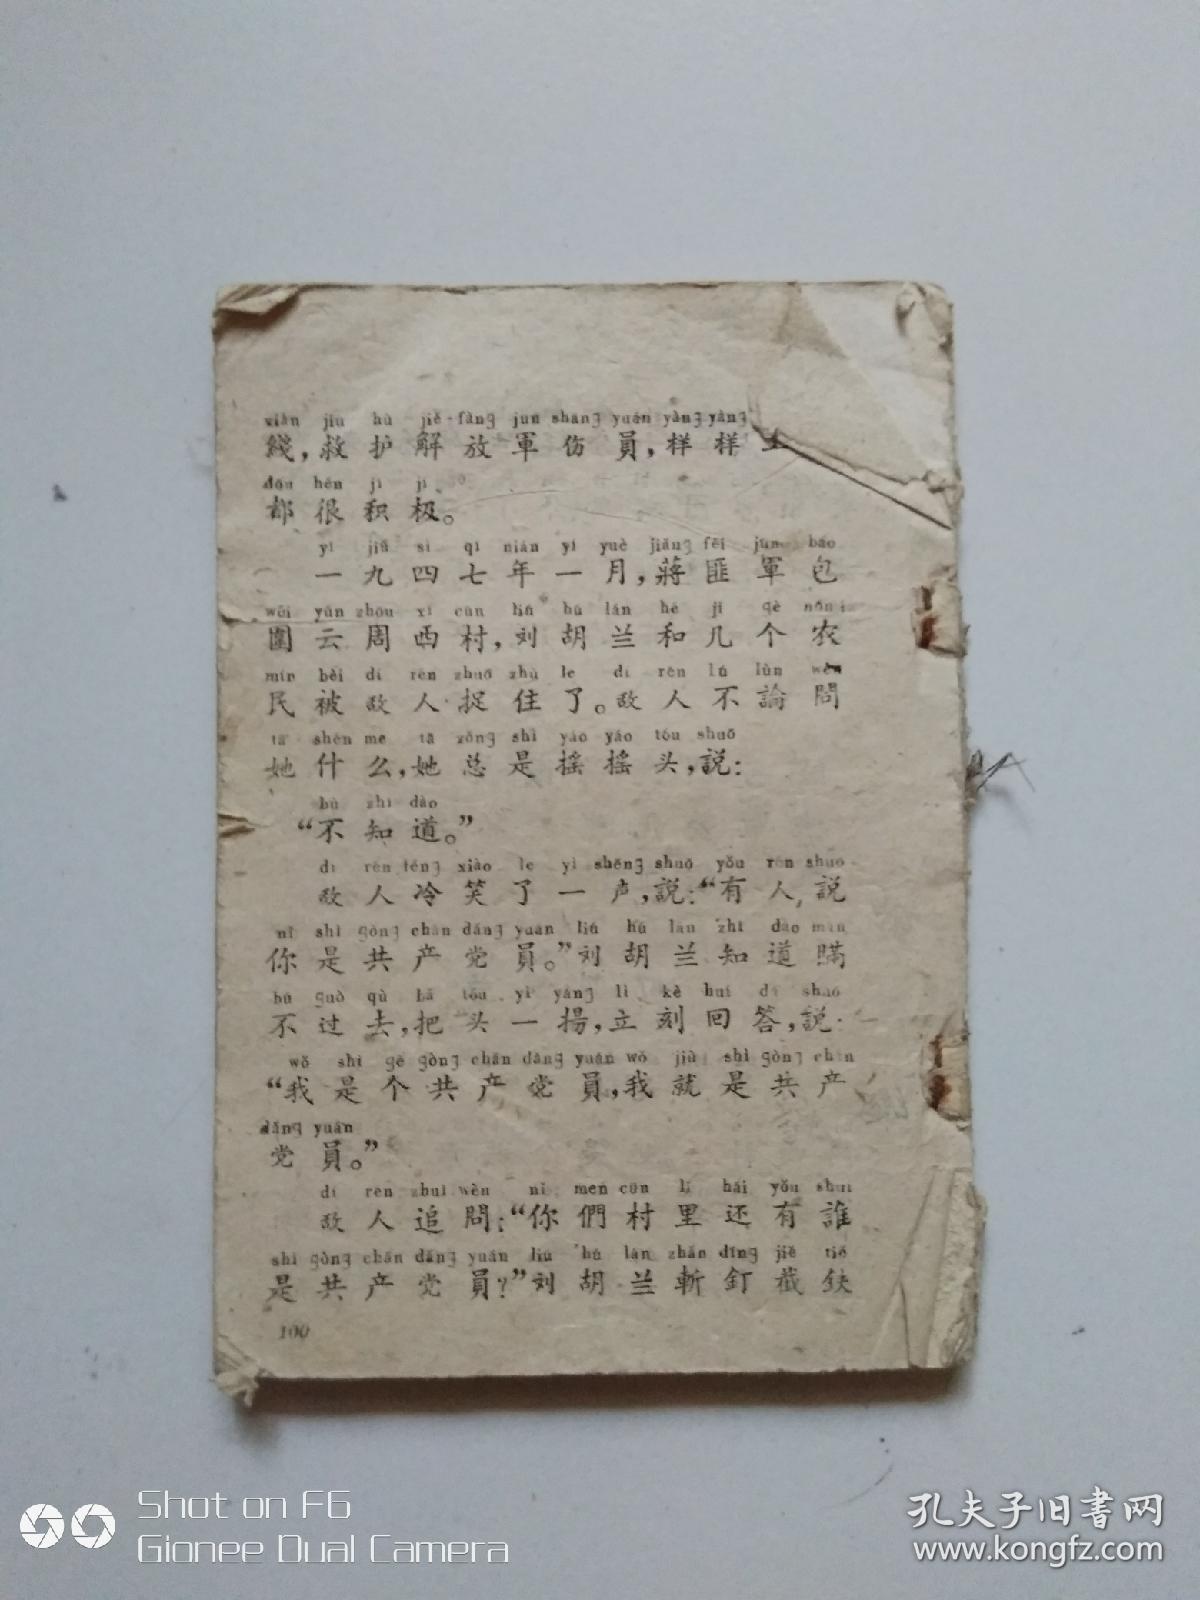 xiàn jiù hù jiě-fàng jūn shāng yuán yàng yàng
綫，救护解放軍伤員，样样
dōu hěn jī jí
都很积极。
yī jiǔ sì qī nián yī yuè jiǎng fěi jūn bāo
一九四七年一月，蔣匪軍包
wéi yún zhōu xī cūn liú hú lán hé jǐ gè nóng
圍云周西村，刘胡兰和几个农
mín bèi dí rén zhuō zhù le dí rén lú lùn wèn
民被敌人捉住了。敌人不論問
tā shén me tā zǒng shì yáo yáo tóu shuō
她什么，她总是摇摇头，說：
bù zhī dào
“不知道。”
dí rén lěng xiào le yì shēng shuō yǒu rén shuō
敌人冷笑了一声，說：“有人說
nǐ shì gòng chǎn dǎng yuán liú hú lán zhī dào mán
你是共产党員。”刘胡兰知道瞞
bú guò qù bǎ tóu yì yáng lì kè huí dá shuō
不过去，把头一揚，立刻回答，說：
wǒ shì gè gòng chǎn dǎng yuán wǒ jiù shì gòng chǎn
“我是个共产党員，我就是共产
dǎng yuán
党員。”
dí rén zhuī wèn nǐ men cūn lǐ hái yǒu shuí
敌人追問：“你們村里还有誰
shì gòng chǎn dǎng yuán liú hú lán zhǎn dīng jié tiě
是共产党員？”刘胡兰斬釘截鉄
100
Shot on F6
Gionee Dual Camera
孔夫子旧书网
www.kongfz.com